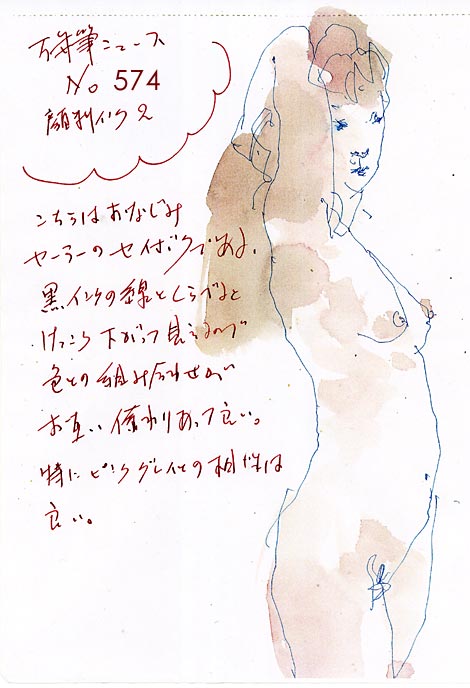 万年筆ニュース
No 574
顔料インク2
こちらはおなじみ
セーラーのセイボクである。
黒インクの線とくらべると
けっこう下がって見えるので
色との組み合わせが
お互い係わりあって良い。
特にピンクグレイとの相性は
良い。